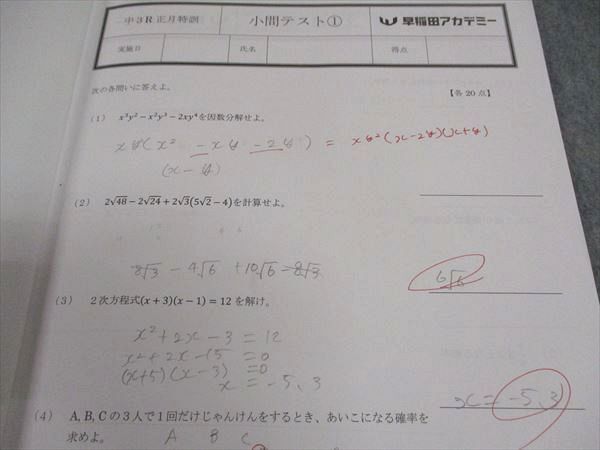 中3R 正月特訓 小問テスト① 早稲田アカデミー
実施日 氏名 得点
次の各問いに答えよ。 【各20点】
(1) x³y²−x²y³−2xy⁴を因数分解せよ。
xy(x² −xy −2y) = xy²(x−2y)(x+y)
(x− y)
(2) 2√48−2√24+2√3(5√2−4)を計算せよ。
8√3 − 4√6 +10√6 −8√3
6√6
(3) 2次方程式(x+3)(x−1)=12を解け。
x²+2x−3 =12
x²+2x−15 =0
(x+5)(x−3) =0
x = −5, 3
x = −5, 3
(4) A, B, Cの3人で1回だけじゃんけんをするとき、あいこになる確率を
求めよ。 A B C